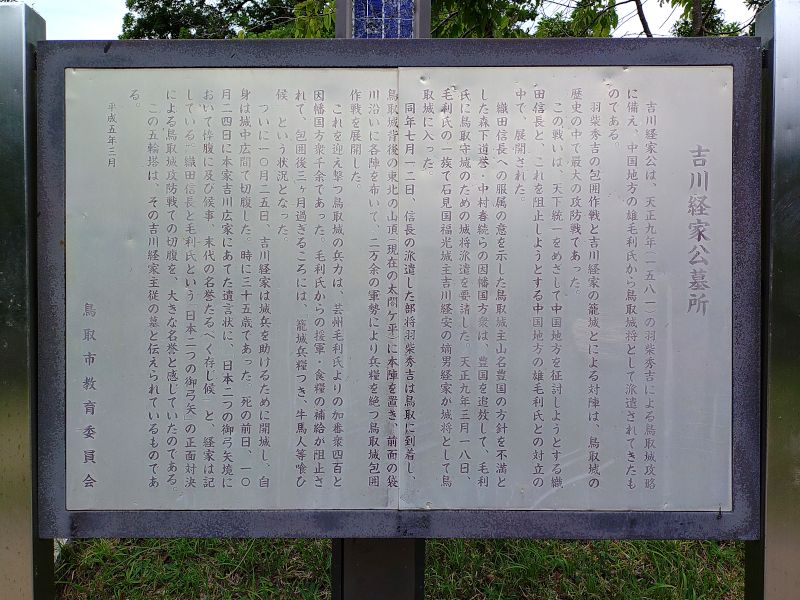 吉川経家公墓所
吉川経家公は、天正九年（一五八一）の羽柴秀吉による鳥取城攻略
に備え、中国地方の雄毛利氏から鳥取城将として派遣されてきたも
のである。
羽柴秀吉の包囲作戦と吉川経家の籠城とによる対陣は、鳥取城の
歴史の中で最大の攻防戦であった。
この戦いは、天下統一をめざして中国地方を征討しようとする織
田信長と、これを阻止しようとする中国地方の雄毛利氏との対立の
中で、展開された。
織田信長への服属の意を示した鳥取城主山名豊国の方針を不満と
した森下道誉・中村春続らの因幡国方衆は、豊国を追放して、毛利
氏に鳥取守城のための城将派遣を要請した。天正九年三月一八日、
毛利氏の一族で石見国福光城主吉川経安の嫡男経家が城将として鳥
取城に入った。
同年七月一二日、信長の派遣した部将羽柴秀吉は鳥取に到着し、
鳥取城背後の東北の山頂（現在の太閤ケ平）に本陣を置き、前面の袋
川沿いに各陣を布いて、二万余の軍勢により兵糧を絶つ鳥取城包囲
作戦を展開した。
これを迎え撃つ鳥取城の兵力は、芸州毛利氏よりの加番衆四百と
因幡国方衆千余であった。毛利氏からの援軍・食糧の補給が阻止さ
れて、包囲後三ヶ月過ぎるころには、籠城兵糧つき、牛馬人等喰ひ
候、という状況となった。
ついに一〇月二五日、吉川経家は城兵を助けるために開城し、自
身は城中広間で切腹した。時に三十五歳であった。死の前日、一〇
月二四日に本家吉川広家にあてた遺言状に、日本二つの御弓矢境に
おいて忰腹に及び候事、末代の名誉たるべく存し候、と、経家は記
している。織田信長と毛利氏という「日本二つの御弓矢」の正面対決
による鳥取城攻防戦での切腹を、大きな名誉と感じていたのである。
この五輪塔は、その吉川経家主従の墓と伝えられているものであ
る。
平成五年三月
鳥取市教育委員会